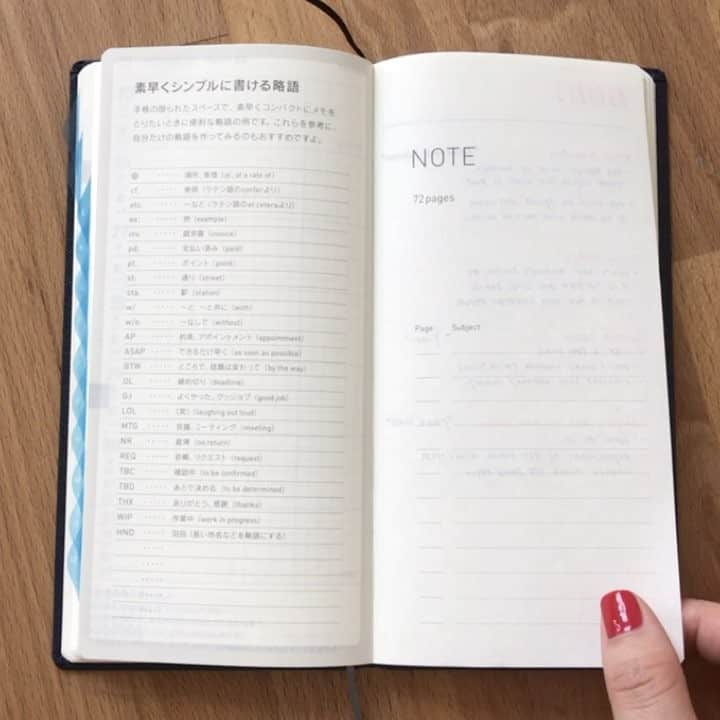 素早くシンプルに書ける略語
手帳の限られたスペースで、素早くコンパクトにメモを
とりたいときに便利な略語の例です。これらを参考に、
自分だけの略語を作ってみるのもおすすめですよ。
@ ····· 場所、単価 (at, at a rate of)
cf. ····· 参照 (ラテン語のconferより)
etc. ····· ～など (ラテン語のet ceteraより)
ex. ····· 例 (example)
inv. ····· 請求書 (invoice)
pd. ····· 支払い済み (paid)
pt. ····· ポイント (point)
st. ····· 通り (street)
sta. ····· 駅 (station)
w/ ····· ～と ～と共に (with)
w/o ····· ～なしで (without)
AP ····· 約束、アポイントメント (appointment)
ASAP ····· できるだけ早く (as soon as possible)
BTW ····· ところで、話題は変わって (by the way)
DL ····· 締め切り (deadline)
GJ ····· よくやった、グッジョブ (good job)
LOL ····· (笑) (laughing out loud)
MTG ····· 会議、ミーティング (meeting)
NR ····· 直帰 (no return)
REQ ····· 依頼、リクエスト (request)
TBC ····· 確認中 (to be confirmed)
TBD ····· あとで決める (to be determined)
THX ····· ありがとう、感謝 (thanks)
WIP ····· 作業中 (work in progress)
HND ····· 羽田 (長い地名などを略語にする)
NOTE
72pages
Page Subject